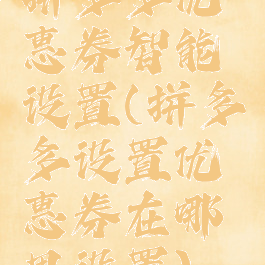 拼多多优
惠券智能
设置(拼多
多设置优
惠券在哪
里设置)